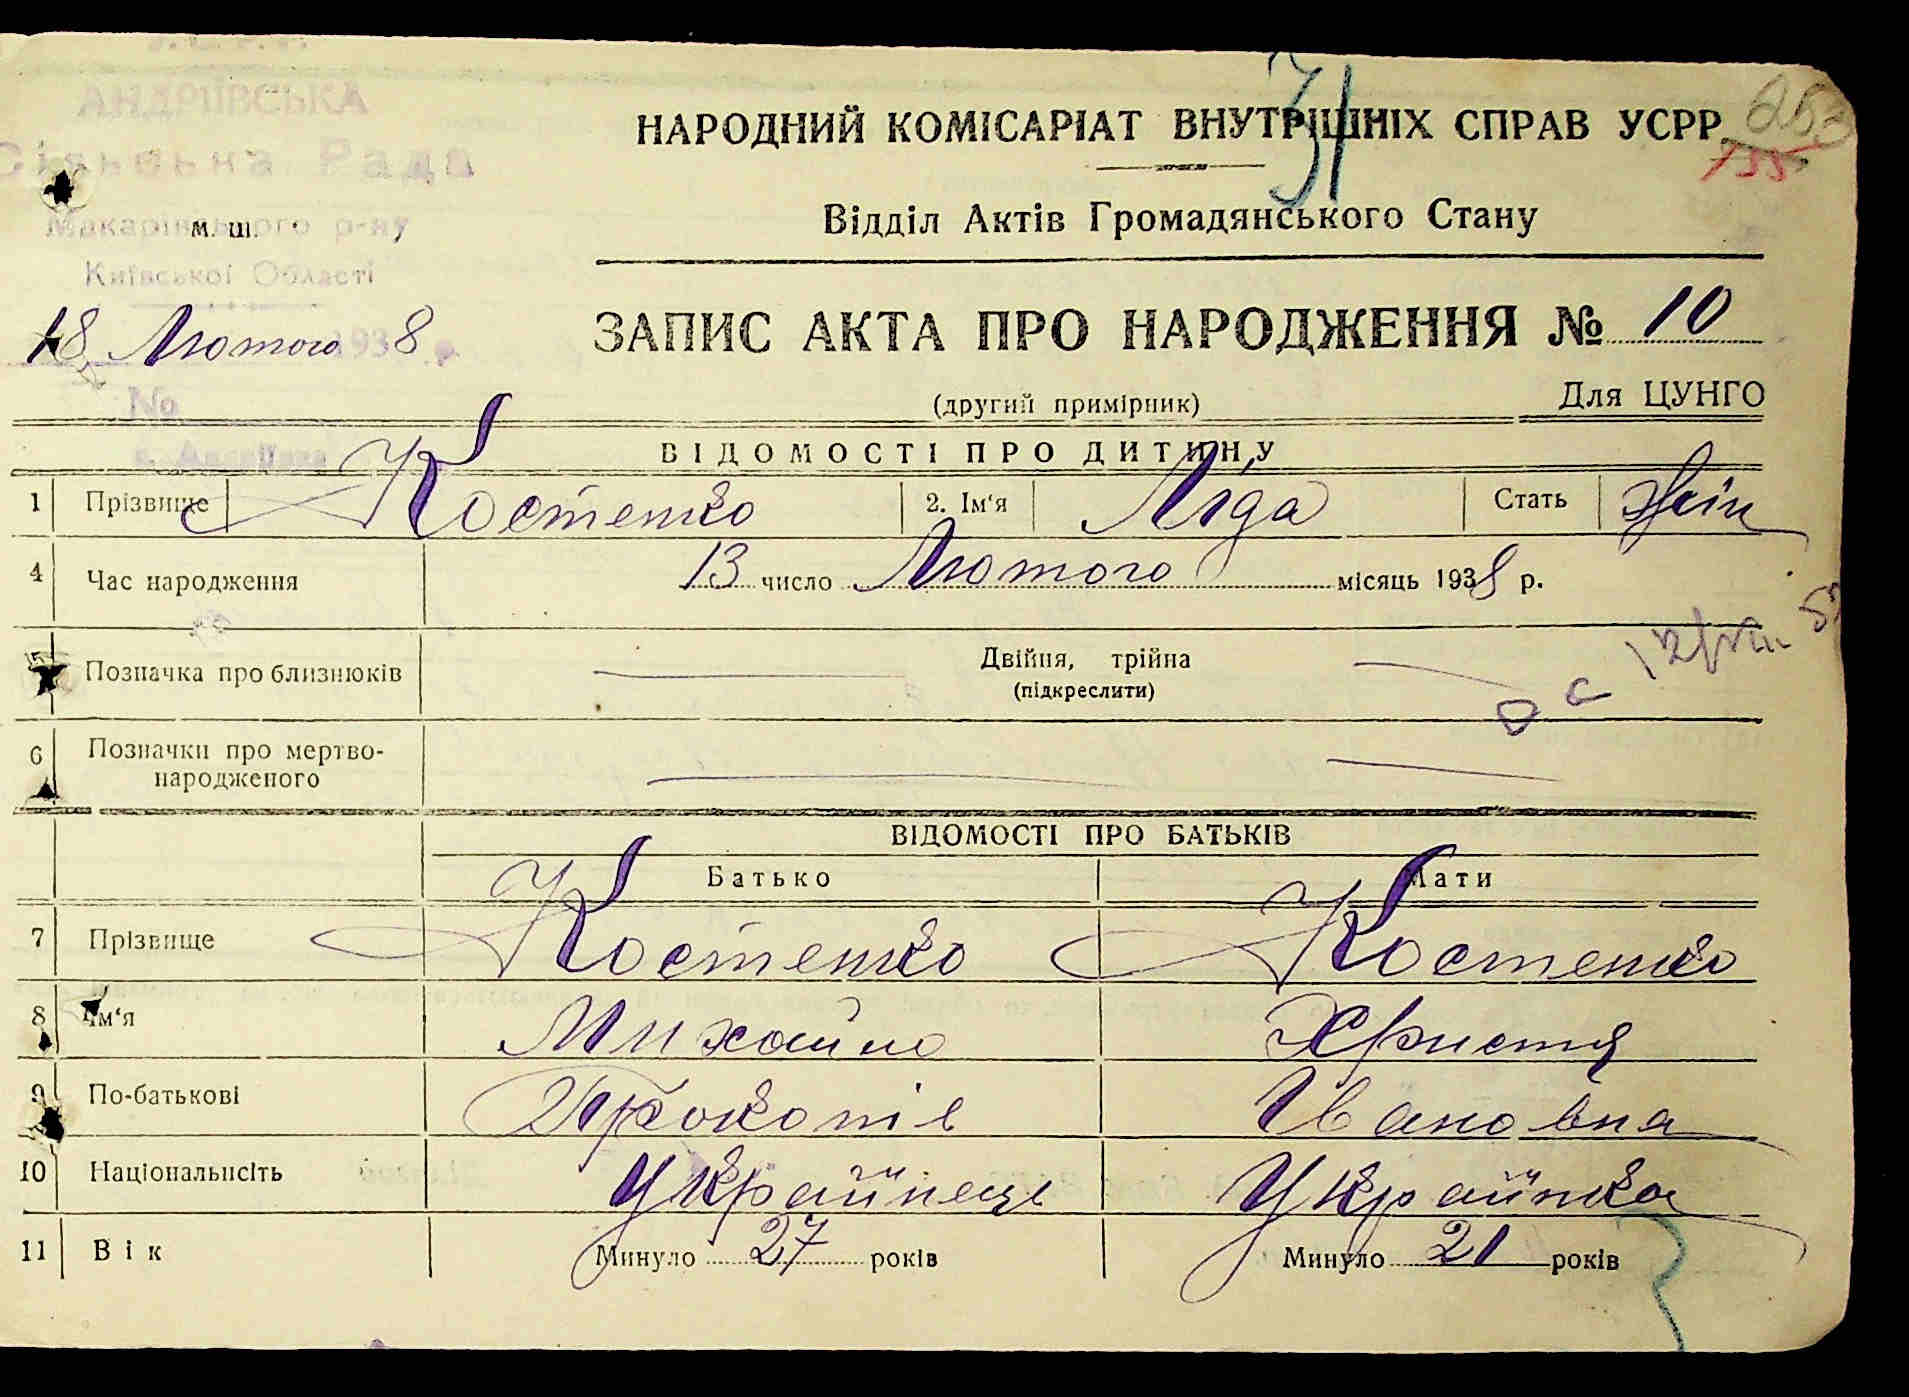 У.С.Р.Р.
АНДРІЇВСЬКА
Сільська Рада
Макарівського р-ну
Київської Області
м. ш.
18 Лютого 1938 р.
№
с. Андріївка
31
НАРОДНИЙ КОМІСАРІАТ ВНУТРІШНІХ СПРАВ УСРР
Відділ Актів Громадянського Стану
ЗАПИС АКТА ПРО НАРОДЖЕННЯ № 10
(другий примірник) Для ЦУНГО
ВІДОМОСТІ ПРО ДИТИНУ
1 Прізвище Костенко 2. Ім'я Ліда Стать жін
4 Час народження 13 число Лютого місяць 1938 р.
5 Позначка про близнюків Двійня, трійна
(підкреслити)
6 Позначки про мертво-
народженого
ВІДОМОСТІ ПРО БАТЬКІВ
Батько Мати
7 Прізвище Костенко Костенко
8 Ім'я Михайло Христя
9 По-батькові Прокопів Івановна
10 Національність Українець Українка
11 Вік Минуло 27 років Минуло 21 років